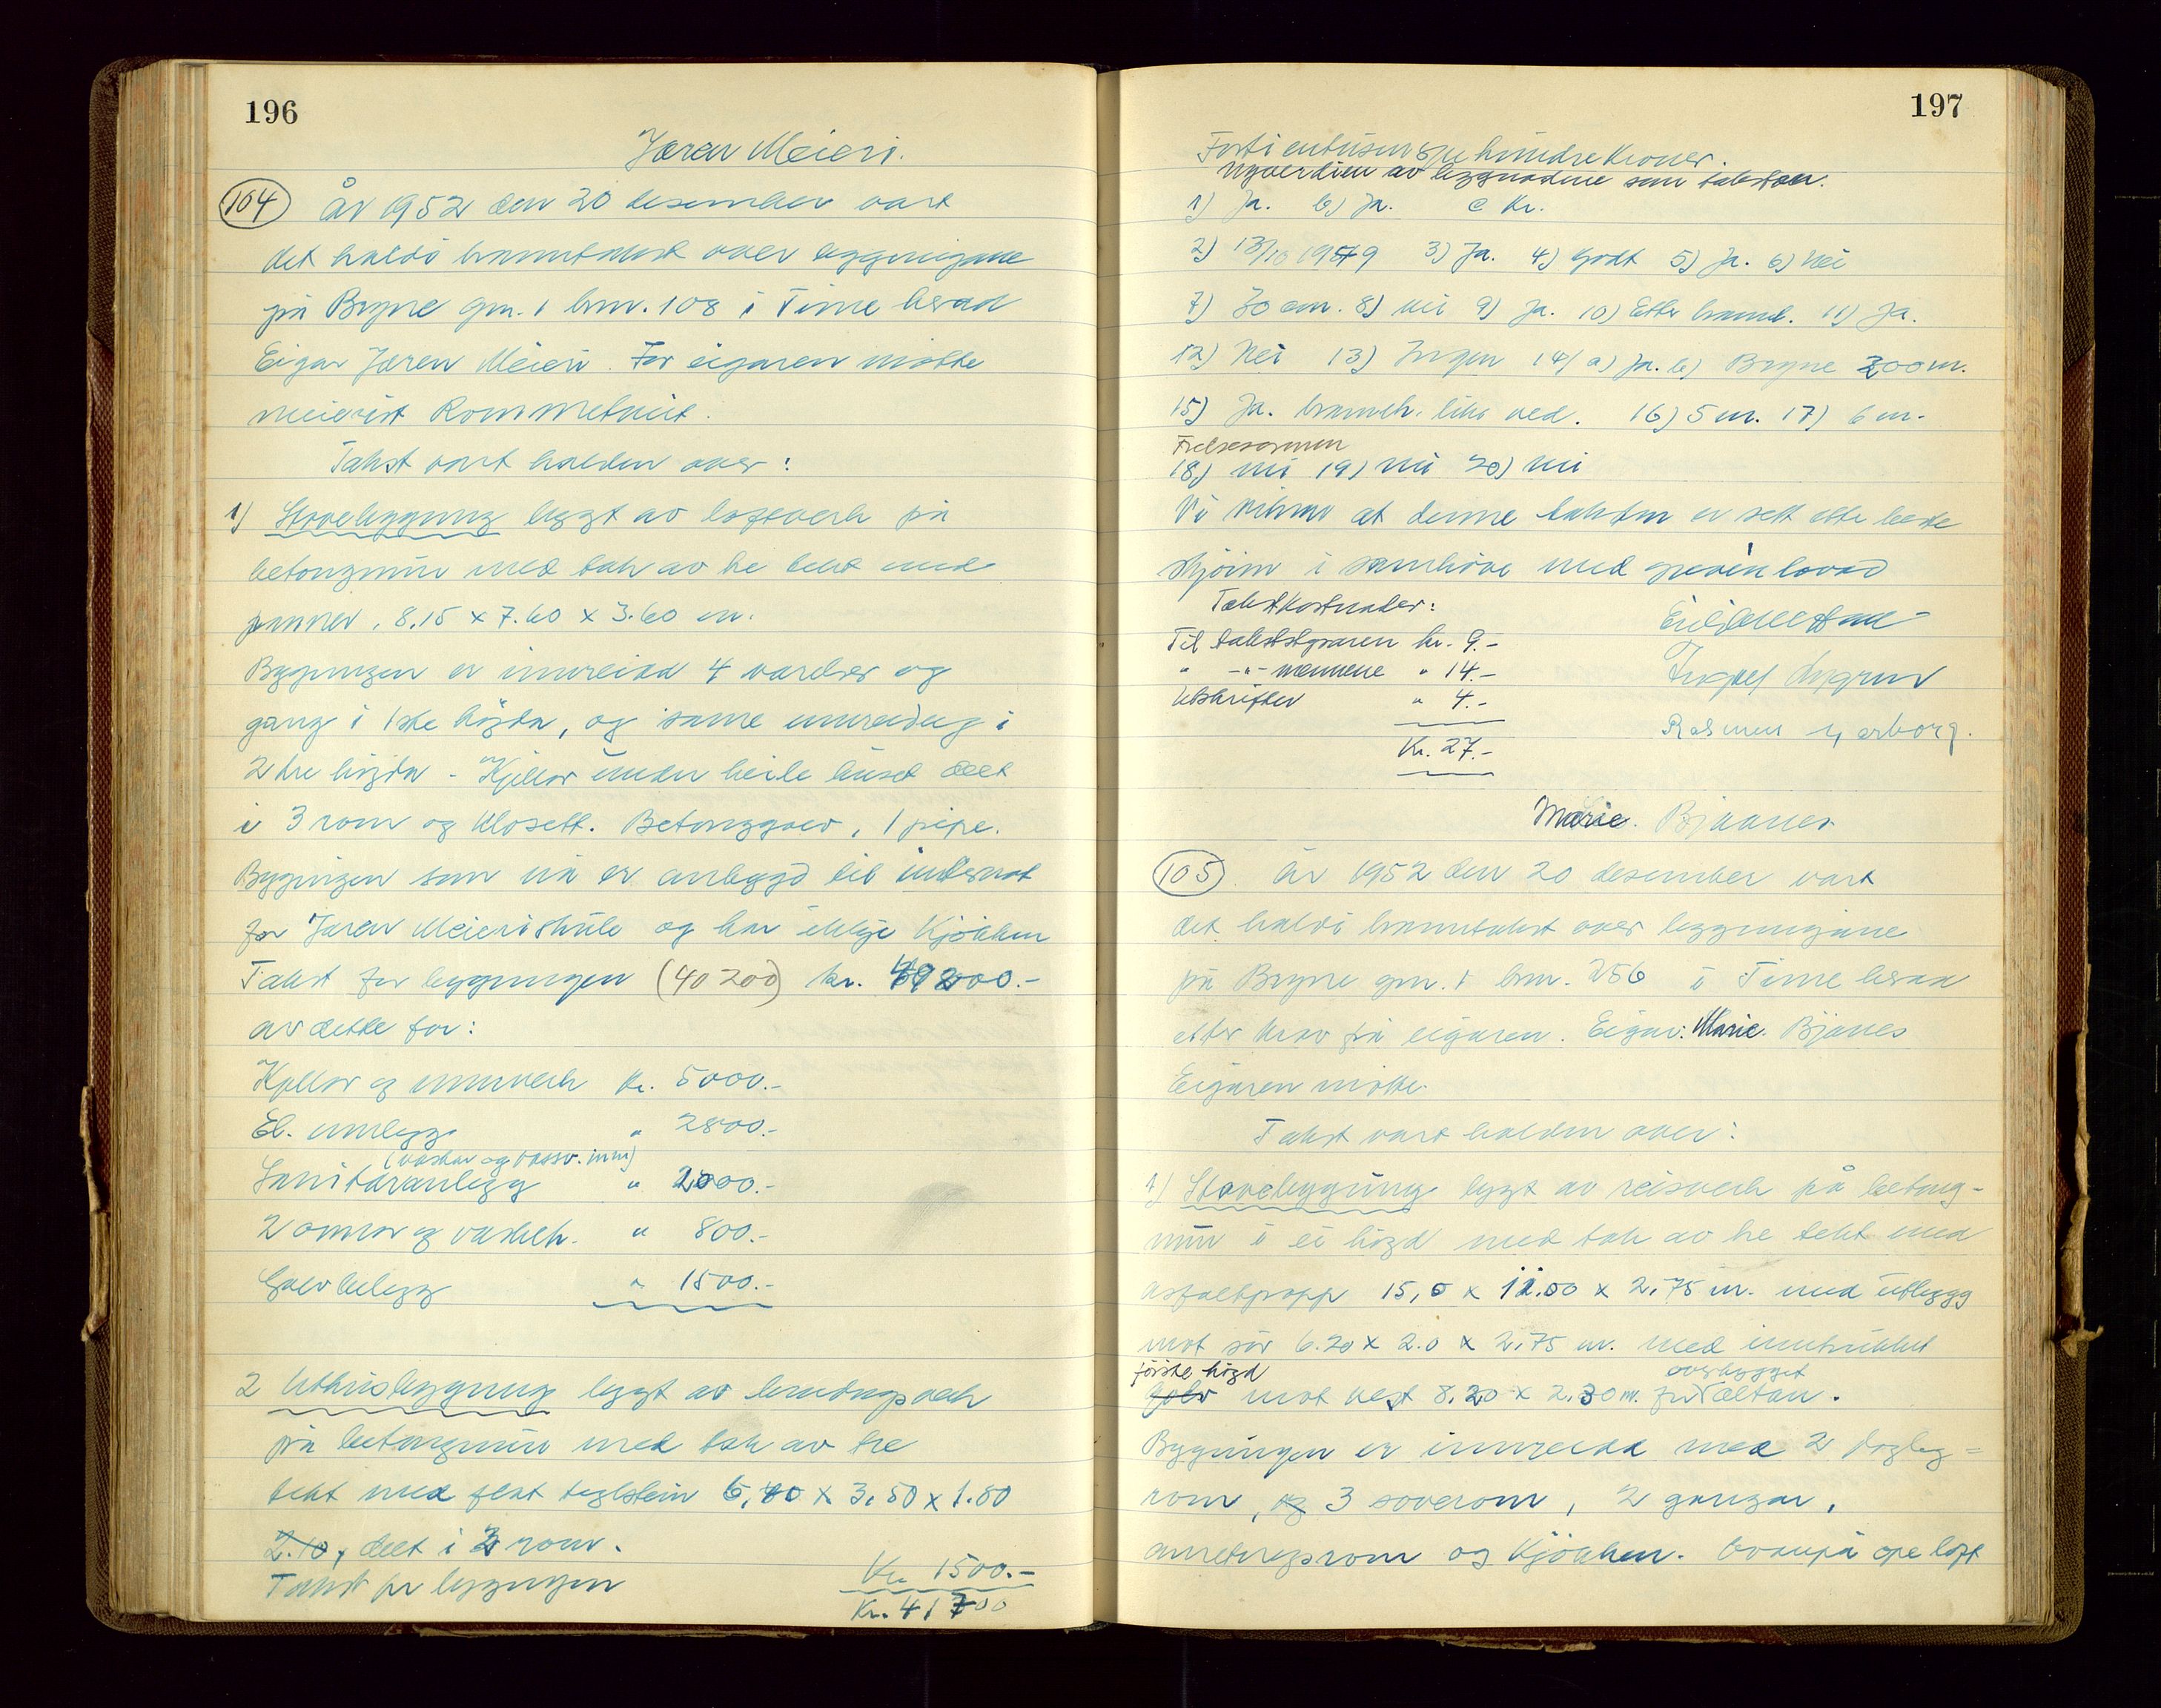 196
Jæren Meieri.
104 År 1952 den 20 desember vart
det haldi branntakst over bygningane
på Bryne gnr. 1 bnr. 108 i Time herad
Eigar Jæren Meieri. For eigaren møtte
meierist Rommetveit.
Takst vart halden over:
1) Stovebygning bygt av loftverk på
betongmur med tak av tre tekt med
panner. 8.15 x 7.60 x 3.60 m.
Bygningen er innreidd 4 værelser og
gang i 1ste høgda, og same innreding i
2dre høgda - Kjellar under heile huset delt
i 3 rom og klosett. Betonggolv, 1 pipe.
Bygningen som nå er ombygd til internat
for Jæren Meieriskule og har ikkje kjøkken
Takst for bygningen (40 200) kr. 40200.-
av dette for:
Kjellar og murverk kr. 5000.-
El. innlegg " 2800.-
(vaskar og vassv. inn)
Sanitæranlegg " 2000.-
2 omnar og vaskeh. " 800.-
Golvbelegg " 1500.-
2 Uthusbygning bygt av bindingsverk
på betongmur med tak av tre
tekt med flat teglstein 6,40 x 3.50 x 1.80
2.10, delt i 2 rom.
Takst for bygningen Kr. 1500.-
Kr. 41700
197
Førti entusen sju hundre kroner.
Nyverdien av bygnadene som taksten.
1) Ja. b) Ja. c Kr.
2) 13/10 1949 3) Ja. 4) Godt 5) Ja. 6) Nei
7) 30 cm. 8) Nei 9) Ja. 10) Etter brannl. 11) Ja.
12) Nei 13) Ingen 14) a) Ja. b) Bryne 300 m.
15) Ja. brannh. like ved. 16) 5 m. 17) 6 m.
18) Nei 19) Nei 20) Nei
Vi vitnar at denne taksten er sett etter beste
skjøn i samhøve med
Takstkostnader:
Til takststyraren kr. 9.-
" -"- mennene " 14.-
Utskrifter " 4.-
Kr. 27.-
Rasmus
Marie. Bjaanes
105 År 1952 den 20 desember vart
det haldi branntakst over bygningane
på Bryne gnr. 1 bnr. 256 i Time herad
etter krav frå eigaren. Eigar: Marie. Bjånes
Eigaren møtte.
Takst vart halden over:
1) Stovebygning bygt av reisverk på betong-
mur i ei høgd med tak av tre tekt med
asfaltpapp 15,0 x 11.00 x 2.75 m. med utbygg
mot sør 6.20 x 2.0 x 2.75 m. med inntrukket
første høgd overbygget
Golv mot vest 8.20 x 2.30 m. for altan.
Bygningen er innreidd med 2 dagleg-
rom, og 3 soverom, 2 gangar,
anretningsrom og kjøkken. Ovanpå ope loft